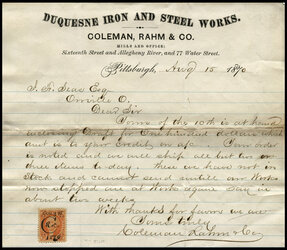 DUQUESNE IRON AND STEEL WORKS.
COLEMAN, RAHM & CO.
MILLS AND OFFICE:
Sixteenth Street and Allegheny River, and 77 Water Street.
Pittsburgh, Aug 15 1870
Esq
Orrville O.
Dear Sir
Yours of the 10th is at hand
Draft for One hundred dollars which
amt is to your credit, Your order
is noted and we will ship all but two or
three items to day. These we have not in
Stock and cannot send until our Works
now stopped are at work again say in
about two weeks
With thanks for favors we are
Yours truly
Coleman Rahm & Co